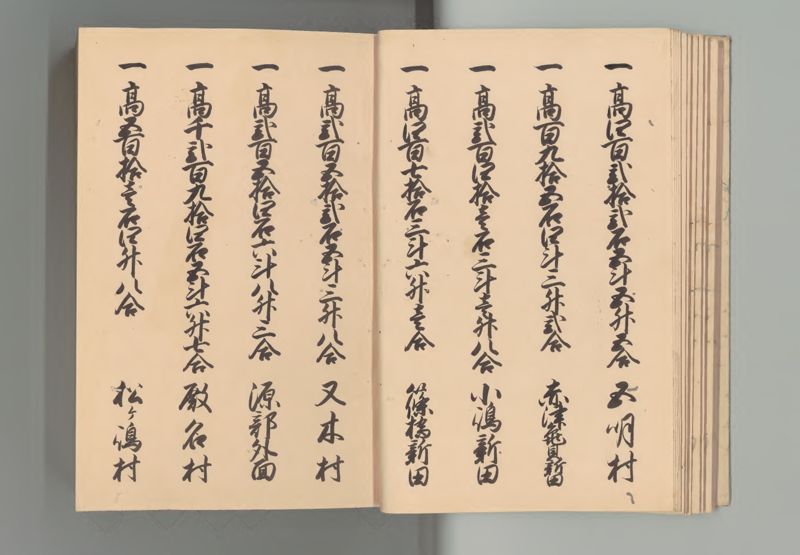 一 高四百弐拾弐石五斗五升五合 五明村
一 高百九拾五石四斗三升弐合 赤津飛貝新田
一 高弐百四拾壱石三斗壱升八合 小鴻新田
一 高四百七拾石三斗六升壱合 篠橋新田
一 高弐百五拾弐石五斗三升八合 又木村
一 高弐百五拾四石六斗八升三合 源部外面
一 高千弐百九拾四石五斗六升七合 殿名村
一 高五百拾壱石四升八合 松ヶ嶋村